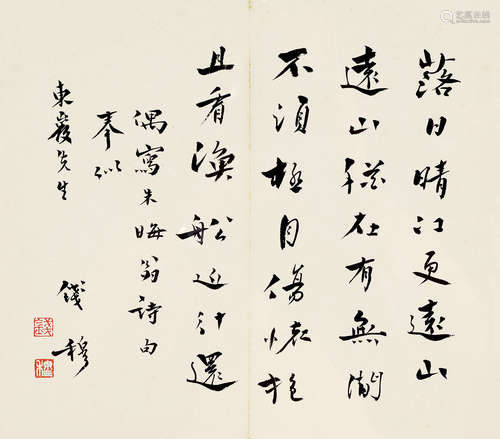 落日晴江更遠山
遠山在有無間
不須極目傷懷抱
且看漁船近還
偶寫朱晦翁詩句
奉似
東先生
錢穆